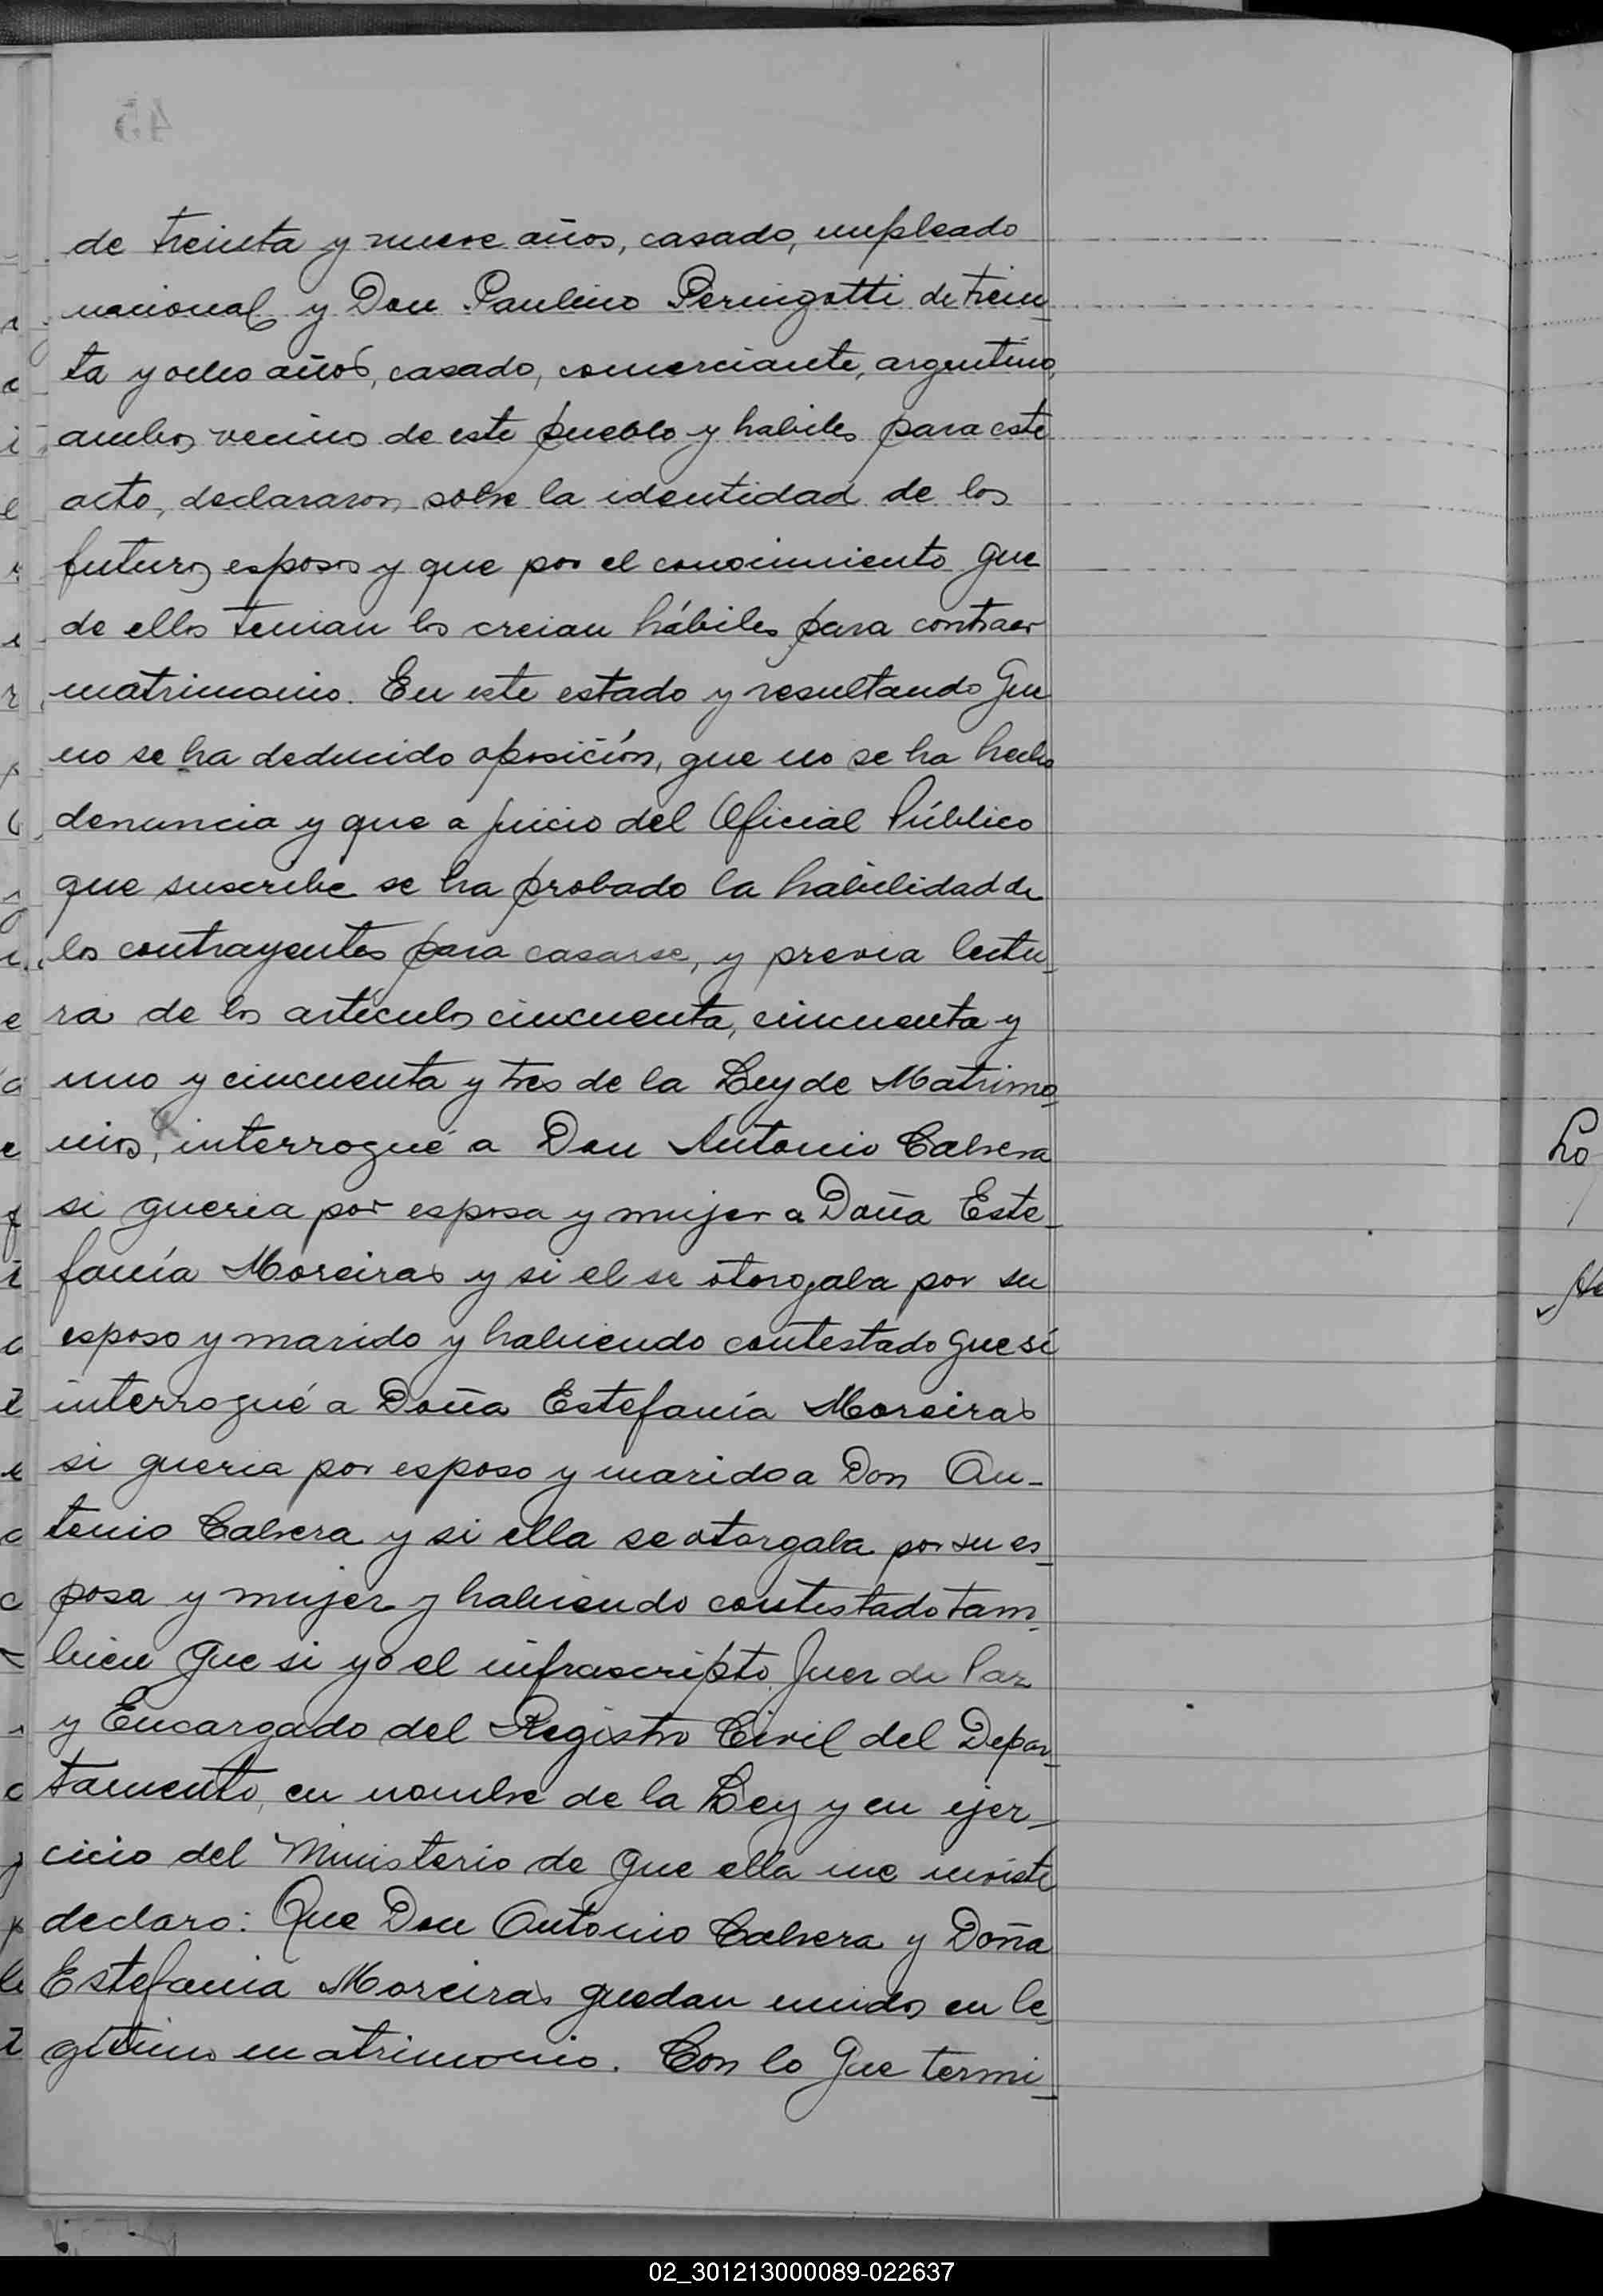 45
de treinta y nueve años, casado, empleado
nacional y Don Paulino Peringotti de trein_
ta y ocho años, casado, comerciante, argentino,
ambos vecinos de este pueblo y habiles para este
acto, declararon sobre la identidad de los
futuros esposos y que por el conocimiento que
de ellos tenian los creian hábiles para contraer
matrimonio. En este estado y resultando que
no se ha deducido oposición, que no se ha hecho
denuncia y que a juicio del Oficial Público
que suscribe se ha probado la habilidad de
los contrayentes para casarse, y previa lectu_
ra de los articulos cincuenta, cincuenta y
uno y cincuenta y tres de la Ley de Matrimo_
nios, interrogué a Don Antonio Cabrera
si queria por esposa y mujer a Doña Este_
fanía Moreiras y si el se otorogaba por su
esposo y marido y habiendo contestado que sí
interrogué a Doña Estefanía Moreiras
si queria por esposo y marido a Don An_
tonio Cabrera y si ella se otorgaba por su es_
posa y mujer y habiendo contestado tam_
bien que si yo el infrascripto Juez de Paz
y Encargado del Registro Civil del Depar_
tamento, en nombre de la Ley y en ejer_
cicio del Ministerio de que ella me inviste
declaro: Que Don Antonio Cabrera y Doña
Estefania Moreiras quedan unidos en le_
gítimo matrimonio. Con lo que termi_
02_301213000089-022637